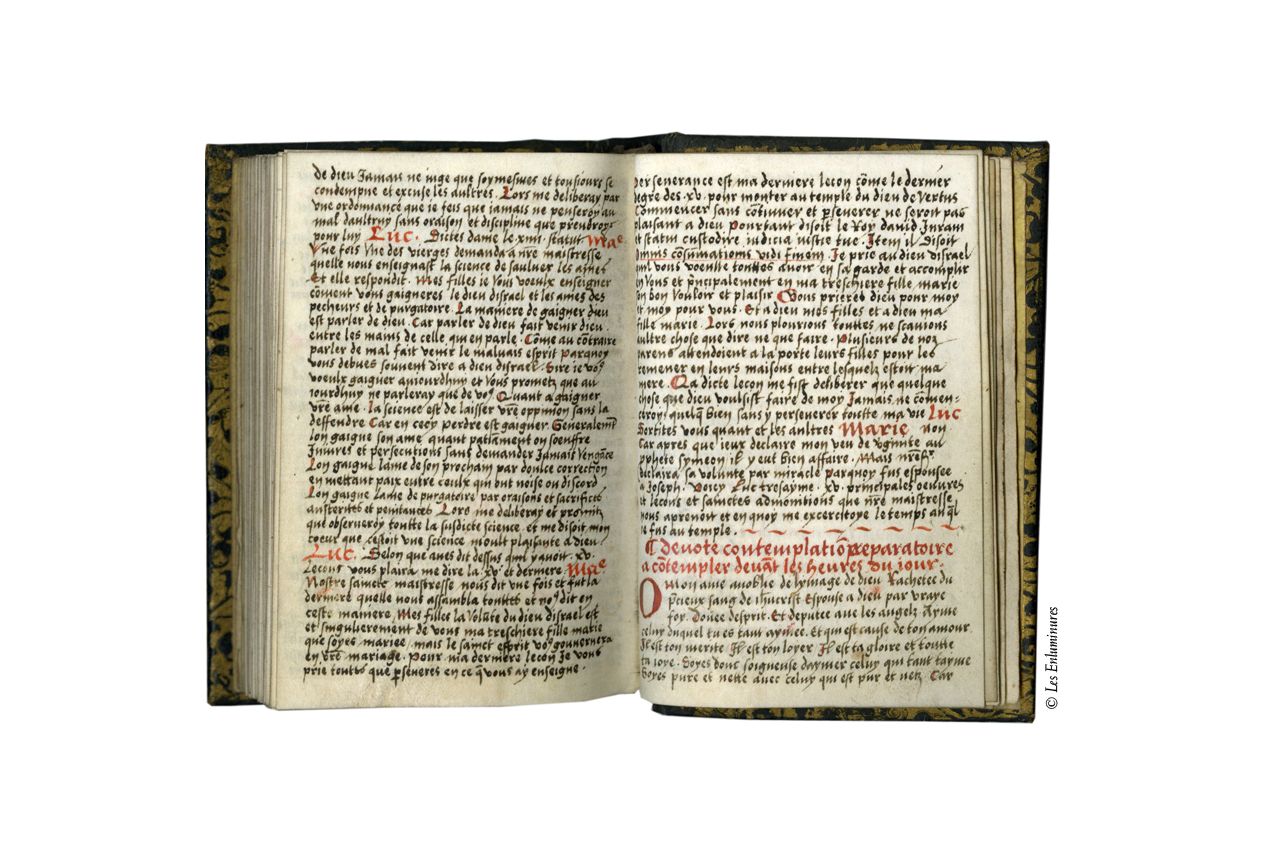 de dieu Jamais ne iuge que soymesmes et tousiours se
condempne et excuse les aultres. Lors me deliberay par
vne ordonnance que ie feis que jamais ne penseroy au
mal daultruy sans oraison et discipline que prendroy
pour luy Luc. Dictes dame le xiiii. statut. Mae.
Vne fois vne des vierges demanda a nr̃e maistresse
quelle nous enseignast la science de saulver les ames
Et elle respondit. Mes filles ie vous voeulx enseigner
cõment vous gaigneres le dieu disrael et les ames des
pecheurs et de purgatoire. La maniere de gaigner dieu
est parler de dieu. Car parler de dieu fait venir dieu
entre les mains de celle qui en parle. Cõme au cõtraire
parler de mal fait venir le malvais esprit parquoy
vous debues souvent dire a dieu disrael. Sire ie voꝯ
voeulx gaigner auiourdhuy et vous prometz que au
iourdhuy ne parleray que de voꝯ. Quant a gaigner
vr̃e ame. la science est de laisser vr̃e oppinion sans la
deffendre Car en cecy perdre est gaigner. Generalemt̃
lon gaigne son ame quant patiãment on soeuffre
Iniures et persecutions sans demander Jamais vengãce
Lon gaigne lame de son prochain par doulce correction
en mettant paix entre ceulx qui ont noise ou discord
Lon gaigne lame de purgatoire par oraisons et sacrifices
austerites et penitances. Lors me deliberay et promitz
que observeroy toutte la susdicte science. et me disoit mon
coeur que cestoit vne science moult plaisante a dieu.
Luc. Selon que aves dit dessus quil y avoit. xv.
Lecons vous plaira me dire la xv. et derniere. Mae
Nostre saincte maistresse nous dit vne fois et fut la
derniere quelle nous assambla touttes et noꝯ dit en
ceste maniere. Mes filles la volũte du dieu disrael est
et singulierement de vous ma treschiere fille marie
que soyes mariee. mais le sainct esprit voꝯ gouvernera
en vr̃e mariage. Pour ma derniere lecon Je vous
prie touttes que ꝑseveres en ce q̃ vous ay enseigne.
perseverance est ma derniere lecon cõme le dernier
degre des .xv. pour monter au temple du dieu de vertus
Commencer sans cõtinuer et ꝑseverer ne seroit pas
plaisant a dieu pourtant disoit le Roy david Iuravi
et statui custodire iudicia iustitie tue. Item il disoit
omnis cõsumationis vidi finem. Je prie au dieu disrael
quil vous voeulle touttes avoir en sa garde et accomplir
en vous et pñcipalement en ma treschiere fille marie
son bon vouloir et plaisir. Vous prieres dieu pour moy
et moy pour vous. Et a dieu mes filles et a dieu ma
fille marie. Lors nous plourions touttes ne scavions
aultre chose que dire ne que faire. Plusieurs de noz
parens attendoient a la porte leurs filles pour les
remener en leurs maisons entre lesquelz estoit ma
mere. La dicte lecon me fist deliberer que quelque
chose que dieu voulsist faire de moy Jamais ne comen-
ceroy quelq̃ bien sans y perseverer toutte ma vie Luc
Sortites vous quant et les aultres Marie non
Car apres que ieux declaire mon veu de v̾ginite au
ꝓphete symeon il y eut bien affaire. Mais nr̃e sr̃
declaira sa volunte par miracle parquoy fus espousee
a Joseph. Voicy Luc tresayme .xv. principales oeuvres
et lecons et sainctes admonitions que nr̃e maistresse
nous aprenoit et en quoy me excercitoye le temps au q̃l
ie fus au temple.
¶ devote contemplatiõ preparatoire
a cõtempler devãt les heures du jour.
O mon ame anoblie de lymage de dieu Rachetee du
p̃cieux sang de ihucrist Espouse a dieu par vraye
foy. Douee desprit. Et deputee avec les angelz Ayme
celuy duquel tu es tant aymee. Et qui est cause de ton amour
Il est ton merite Il est ton loyer Il est ta gloire et toutte
ta ioye. Soyes donc soigneuse daymer celuy qui tant tayme
Soyes pure et nette avec celuy qui est pur et netz. Car
© Les Enluminures